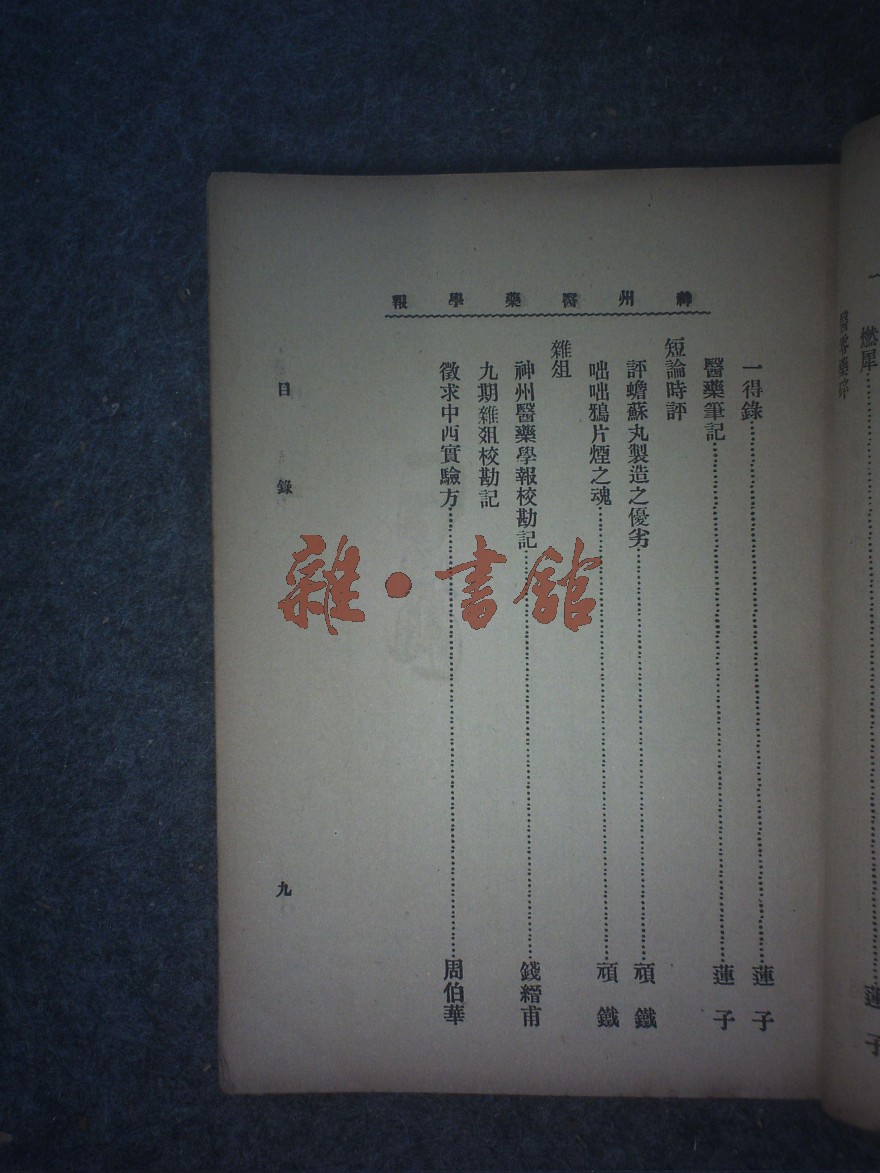 神州醫藥學報
一得錄……蓮子
醫藥筆記……蓮子
短論時評
評蟾蘇丸製造之優劣……頑鐵
咄咄鴉片煙之魂……頑鐵
雜俎
神州醫藥學報校勘記……錢縉甫
九期雜俎校勘記
徵求中西實驗方……周伯華
目錄
九
燃犀……蓮子
雜·書館